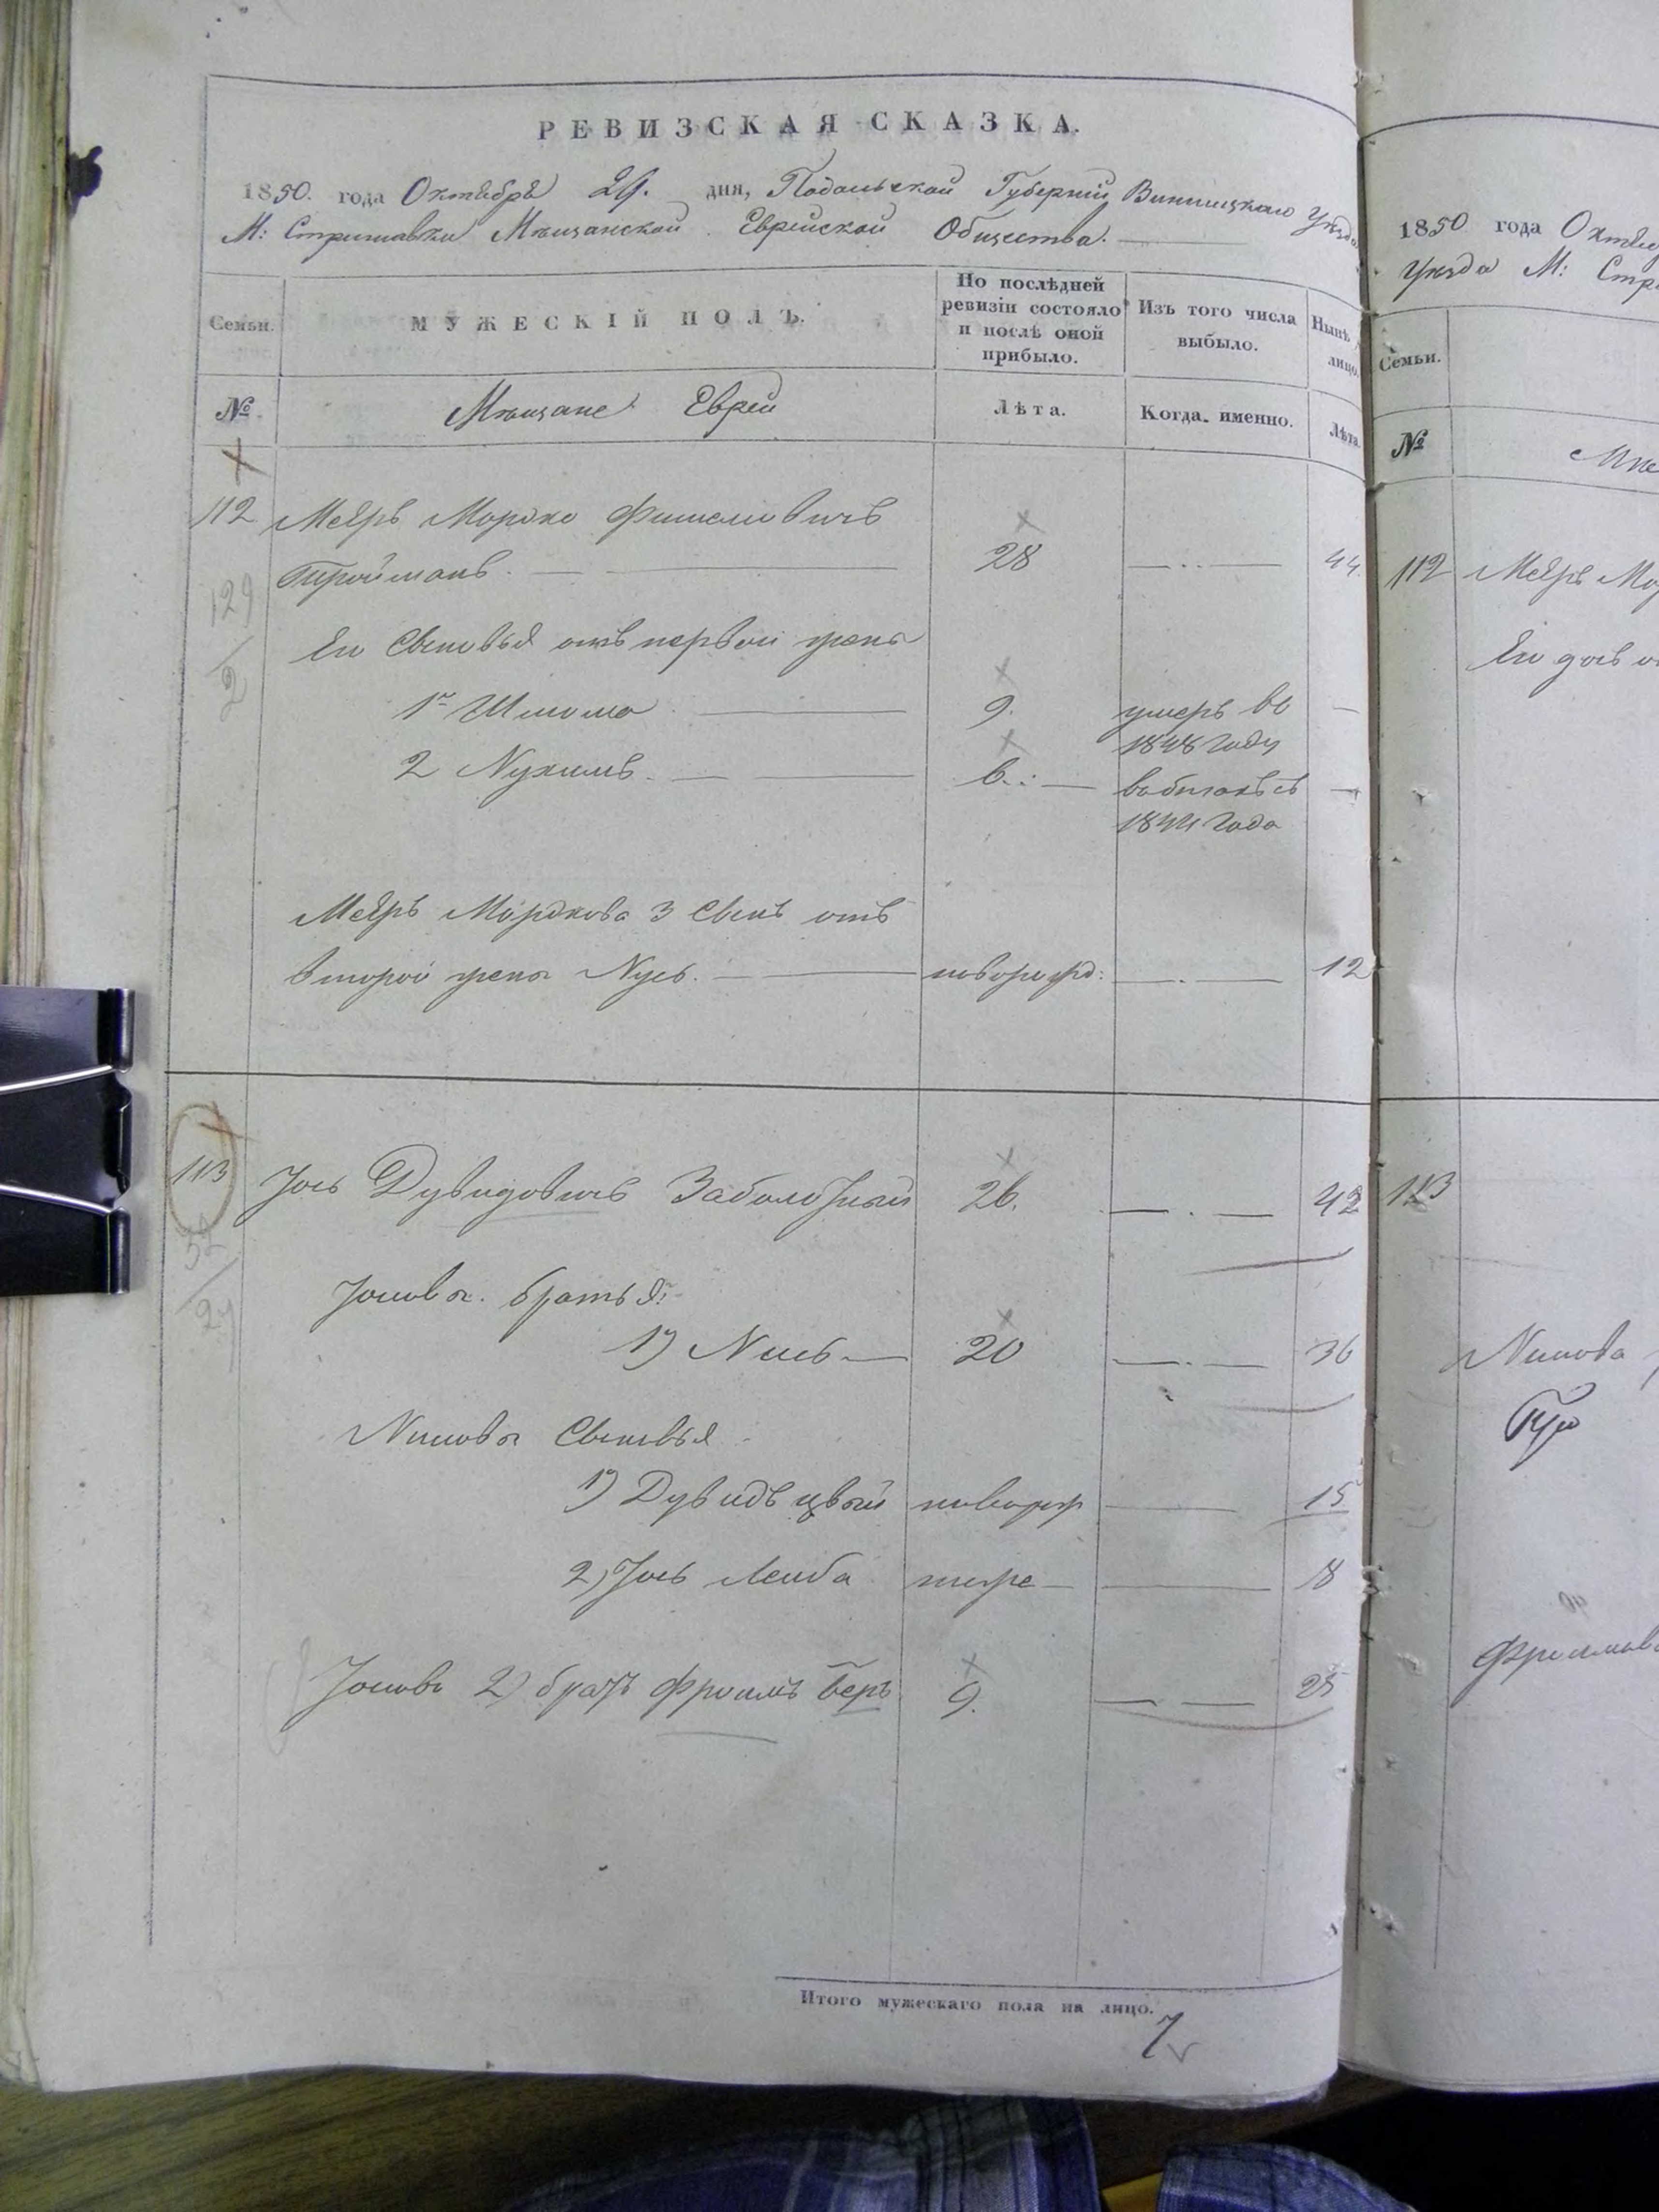 РЕВИЗСКАЯ СКАЗКА.
1850. года Октября 29. дня, Подольской Губерніи Винницкаго Уѣзда
М: Стрижавки Мѣщанской Еврейской Общества.
Семьи.
МУЖЕСКІЙ ПОЛЪ.
По послѣдней ревизіи состояло и послѣ оной прибыло.
Изъ того числа выбыло.
Нынѣ лицо.
№
Мѣщане Евреи
Лѣта.
Когда именно.
Лѣта.
112 Меяръ Мордко Фишелевичъ
Тройманъ. 28 44.
129
2
Его Сыновья отъ первой жены
1й Шлиома 9. умеръ въ
1848 году
2 Нухимъ. 6. въ бѣгахъ съ
1844 года
Меяръ Мордкова 3 Сынъ отъ
второй жены Нусь. новорожд: 12
113 Іось Дувидовичъ Заболотный 26. 42
32
27
Іосиовы братья:
1) Нись 20 36
Нисиовы Сыновья
1) Дувидъ новорож 15
2) Іось Лейба тоже 8
Іосиовъ 2) братъ Фроимъ Беръ 9. 25
Итого мужескаго пола на лицо.
7
1850 года
Уѣзда М:
Семьи.
№
112 Меяръ
Его дочь
113
Нисиова